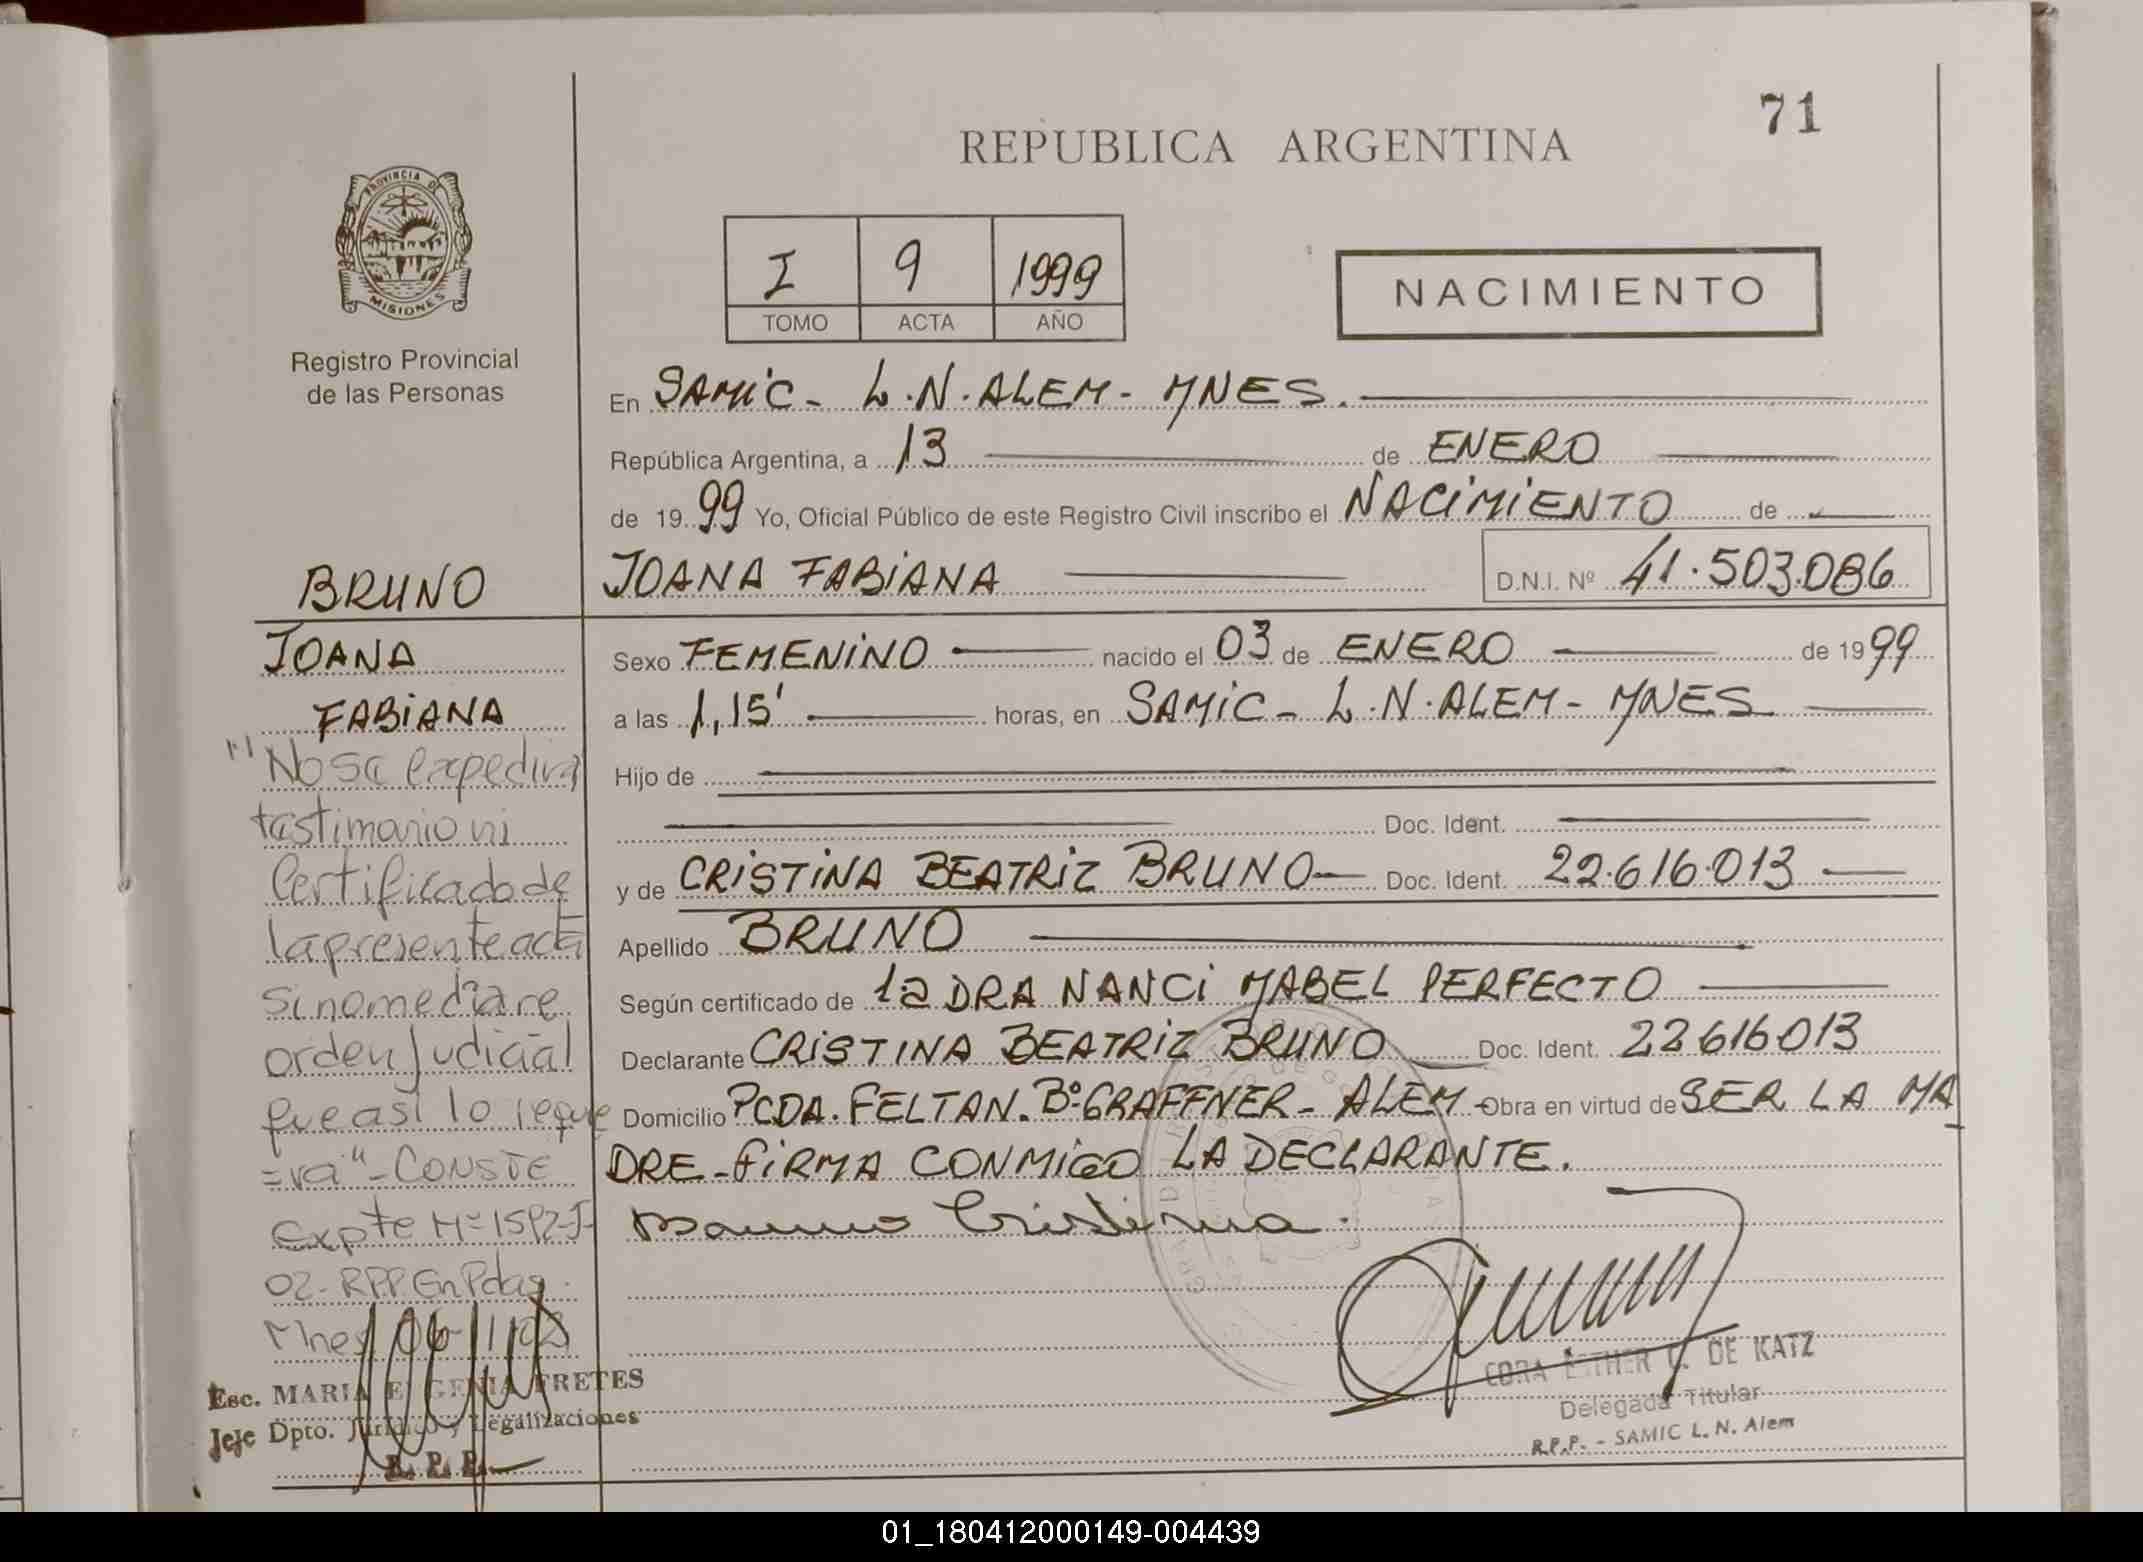 71
REPUBLICA ARGENTINA
PROVINCIA DE
MISIONES
Registro Provincial
de las Personas
I 9 1999
TOMO ACTA AÑO
NACIMIENTO
En SAMIC - L.N. ALEM - MNES.
República Argentina, a 13 de ENERO
de 1999 Yo, Oficial Público de este Registro Civil inscribo el NACIMIENTO de
JOANA FABIANA D.N.I. Nº 41.503.086
Sexo FEMENINO nacido el 03 de ENERO de 1999
a las 1,15' horas, en SAMIC - L.N. ALEM - MNES
Hijo de
Doc. Ident.
y de CRISTINA BEATRIZ BRUNO Doc. Ident. 22.616.013
Apellido BRUNO
Según certificado de la DRA NANCI MABEL PERFECTO
Declarante CRISTINA BEATRIZ BRUNO Doc. Ident. 22616013
Domicilio PCDA. FELTAN. Bº GRAFFNER - ALEM - Obra en virtud de SER LA MA
DRE - FIRMA CONMIGO LA DECLARANTE.
Bruno Cristina.
CORA ESTHER DE KATZ
Delegada Titular
R.P.P. - SAMIC L. N. Alem
BRUNO
JOANA
FABIANA
"No se expedirá
testimonio ni
Certificado de
la presente acta
si no mediare
orden judicial
que así lo reque
=ra" - CONSTE
Expte Nº 1592-J-
02 - RPP En Pdas
Mnes 06-11-02
Esc. MARIA EUGENIA FRETES
Jefe Dpto. Jurídico y Legalizaciones
R. P. P.
01_180412000149-004439